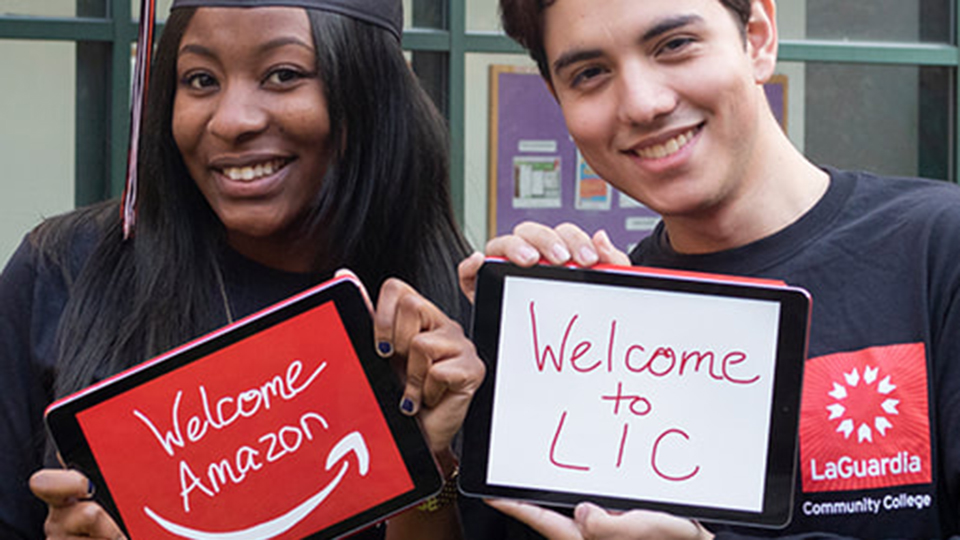 Welcome
Amazon
Welcome
to
LIC
LaGuardia
Community College